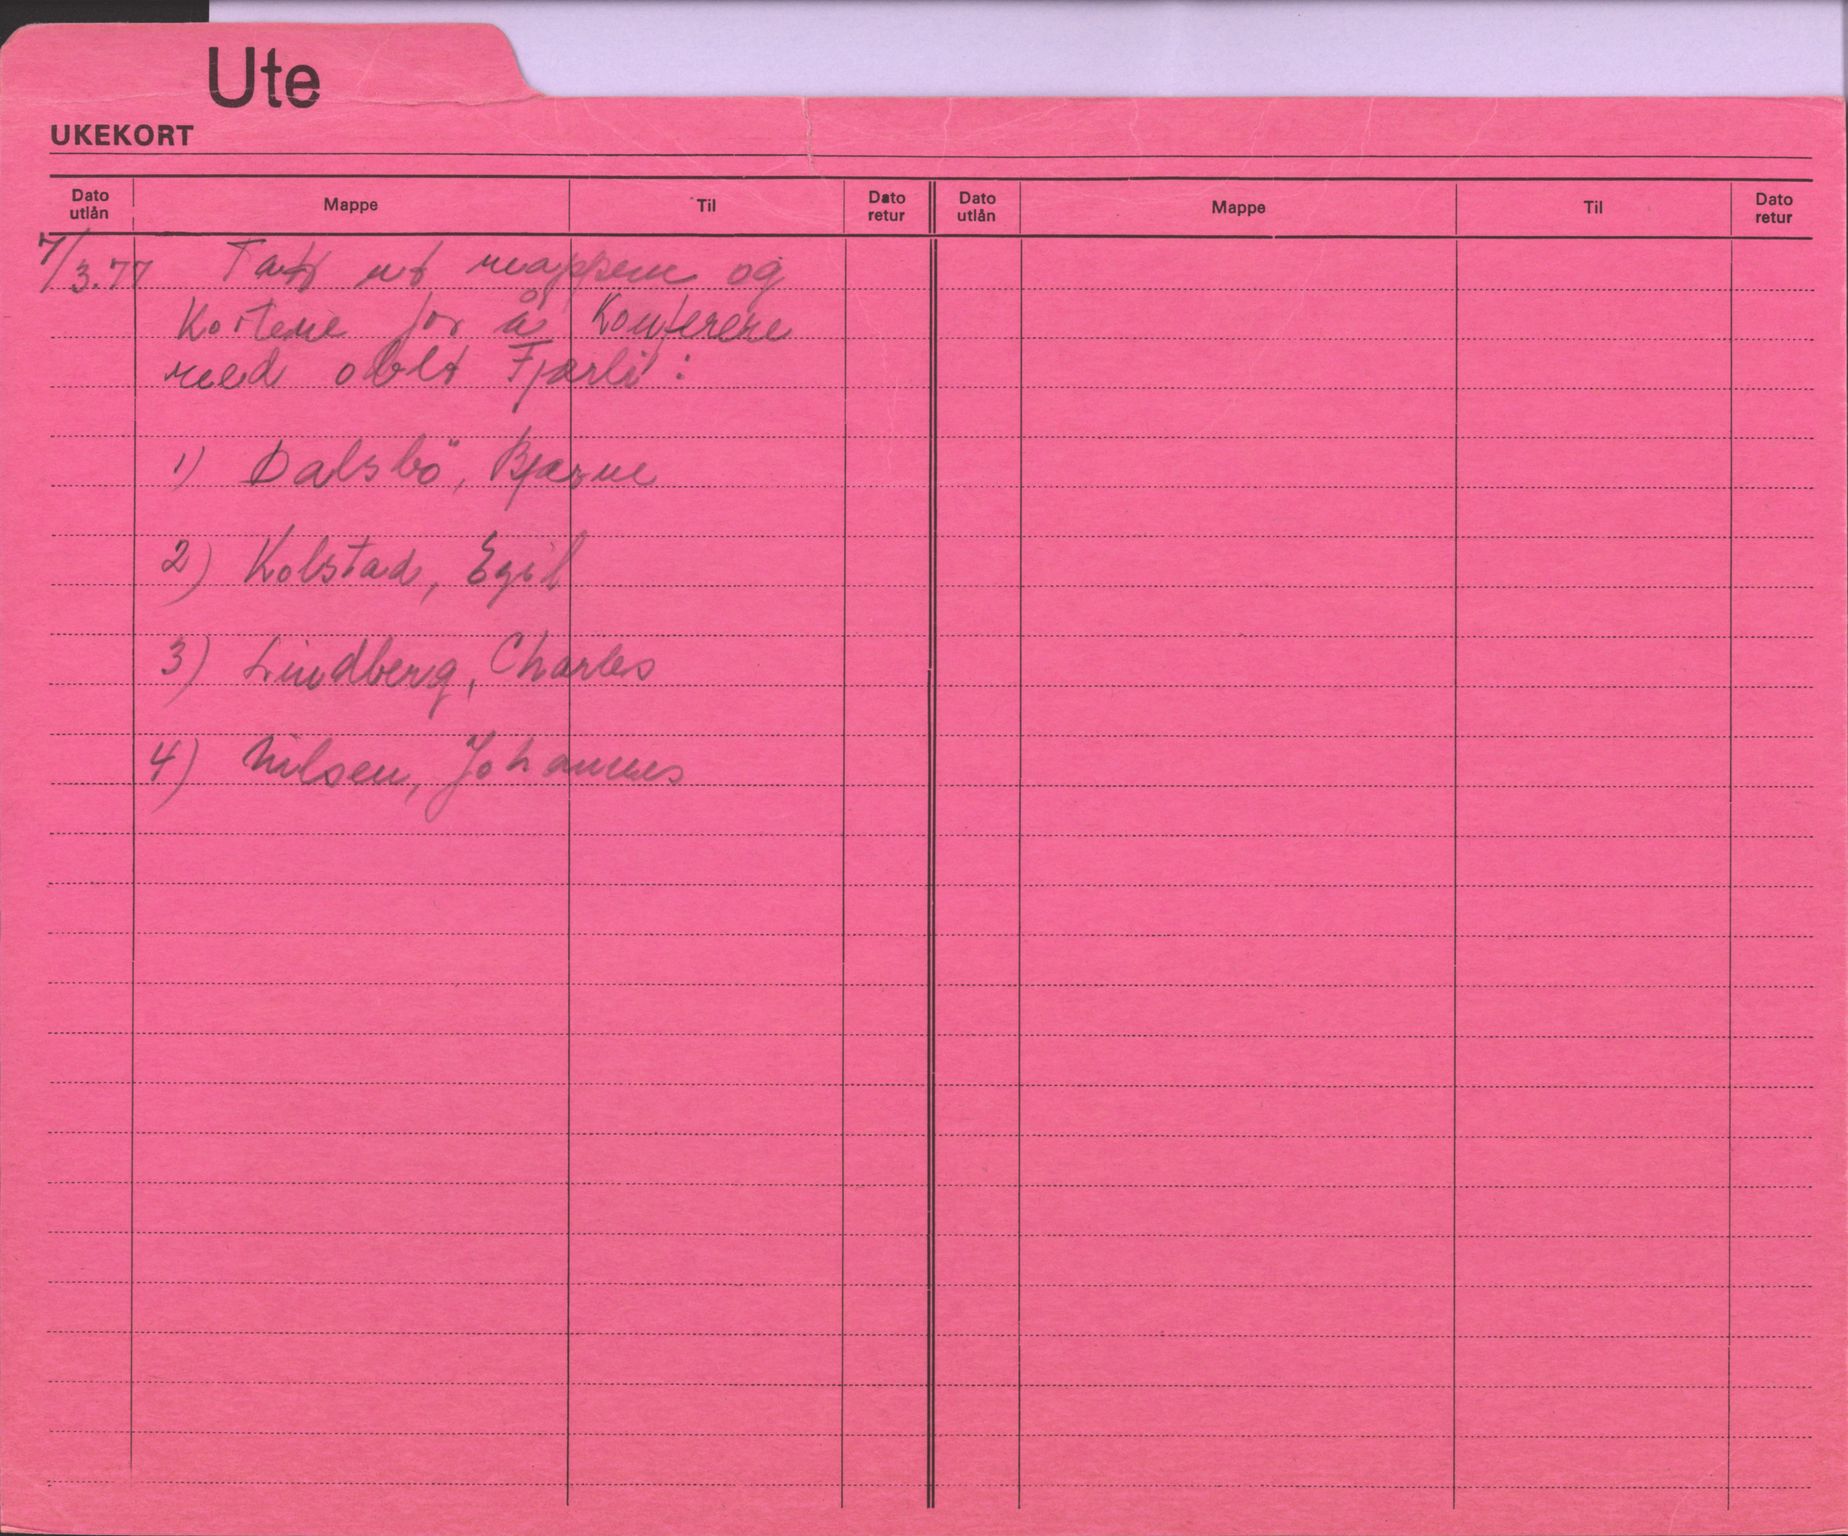 Ute
UKEKORT
Dato utlån Mappe Til Dato retur Dato utlån Mappe Til Dato retur
7/3.77 Tatt ut mappene og
Kortene for å Konferere
med oblt Fjærli :
1) Dalsbö, Bjarne
2) Kolstad, Egil
3) Lindberg, Charles
4) Nilsen, Johannes